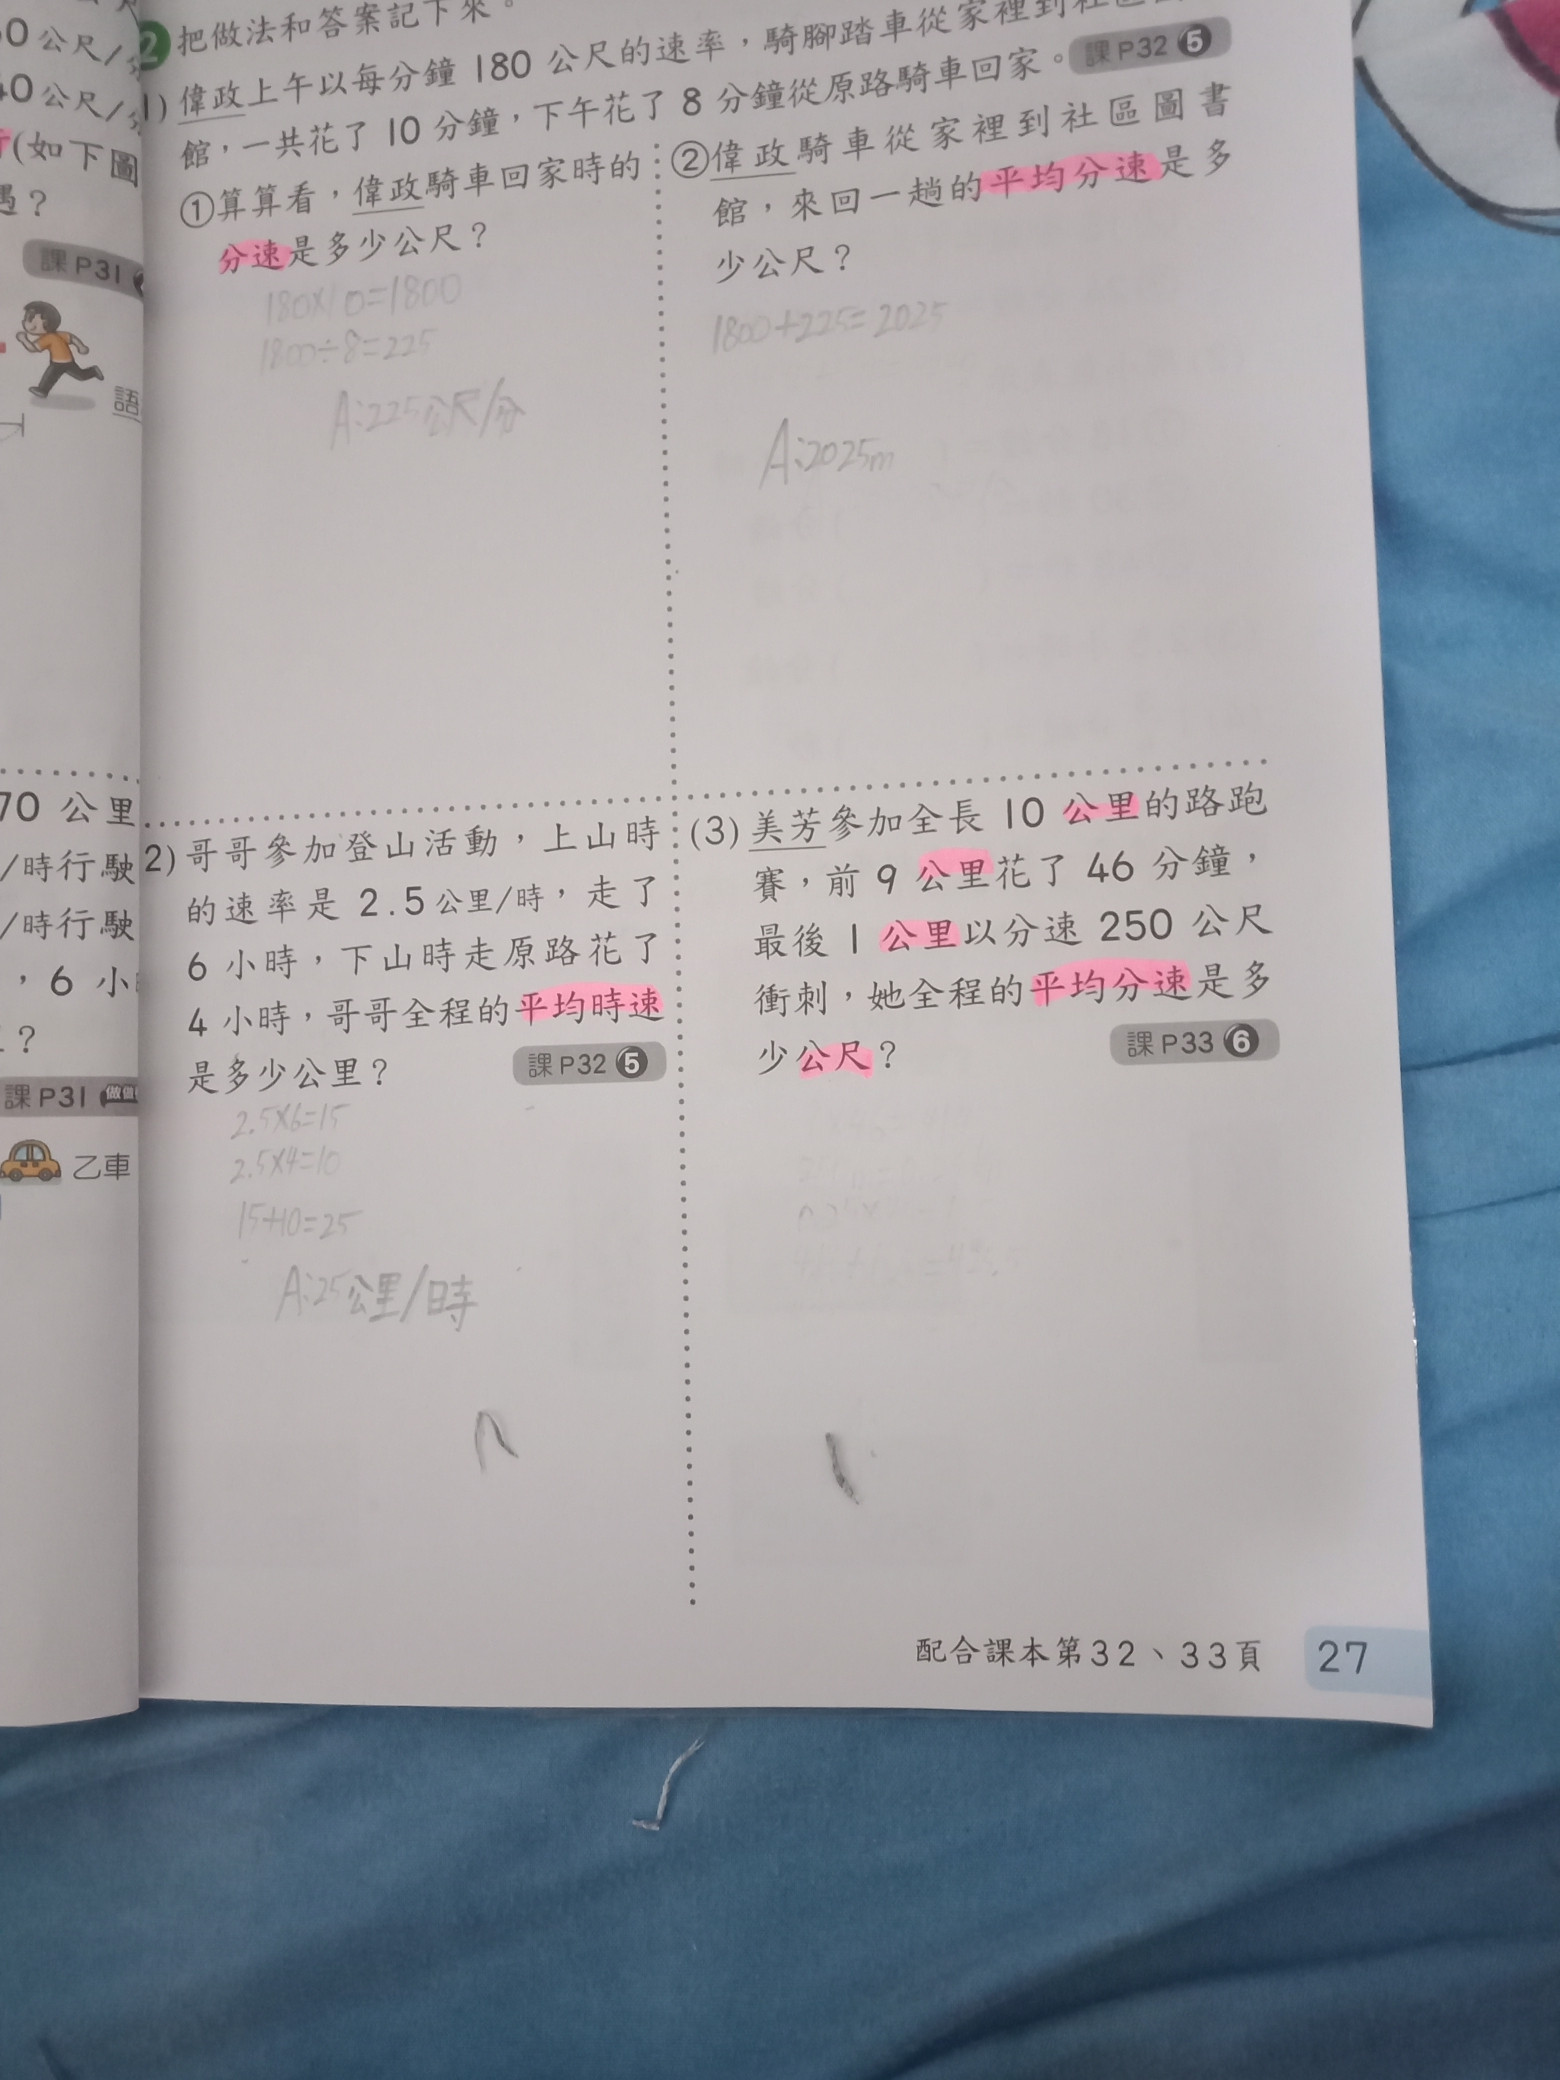 0公尺/
40公尺/
(如下圖
遇？
課P31
語
70 公里
/時行駛
/時行駛
，6 小
？
課P31 做做
乙車
2 把做法和答案記下來。
1) 偉政上午以每分鐘 180 公尺的速率，騎腳踏車從家裡到社區
館，一共花了 10 分鐘，下午花了 8 分鐘從原路騎車回家。 課P32 5
①算算看，偉政騎車回家時的
分速是多少公尺？
180×10=1800
1800÷8=225
A:225公尺/分
②偉政騎車從家裡到社區圖書
館，來回一趟的平均分速是多
少公尺？
1800+225=2025
A:2025m
2) 哥哥參加登山活動，上山時
的速率是 2.5公里/時，走了
6 小時，下山時走原路花了
4 小時，哥哥全程的平均時速
是多少公里？ 課P32 5
2.5×6=15
2.5×4=10
15+10=25
A:25公里/時
(3) 美芳參加全長 10 公里的路跑
賽，前 9 公里花了 46 分鐘，
最後 1 公里以分速 250 公尺
衝刺，她全程的平均分速是多
少公尺？ 課P33 6
配合課本第32、33頁 27